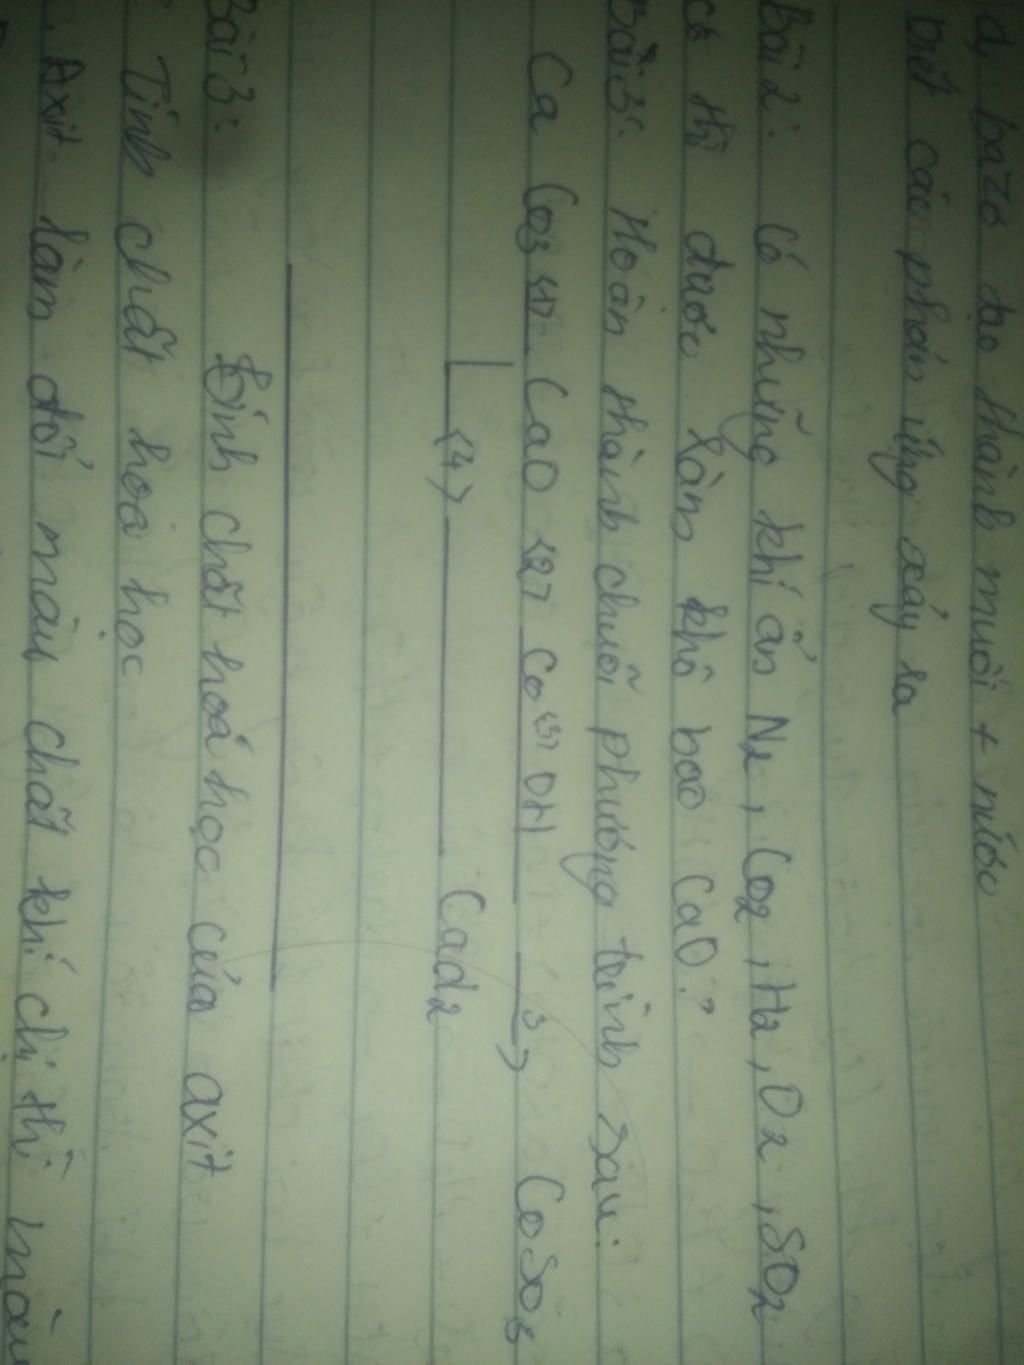 d, bazơ tạo thành muối + nước
viết các phản ứng xảy ra
Bài 2: Có những khí ẩn N2, Co2, H2, O2, SO2
thì được làm khô bao CaO?
Bài 3: Hoàn thành chuỗi phương trình sau:
Ca Co3 (1) CaO (2) Ca (3) OH 3 CaSO3
(4) CaCl2
Bài 3: Tính chất hoá học của axit
Tính chất hoá học
. Axit làm đổi màu chất khí chỉ thị màu